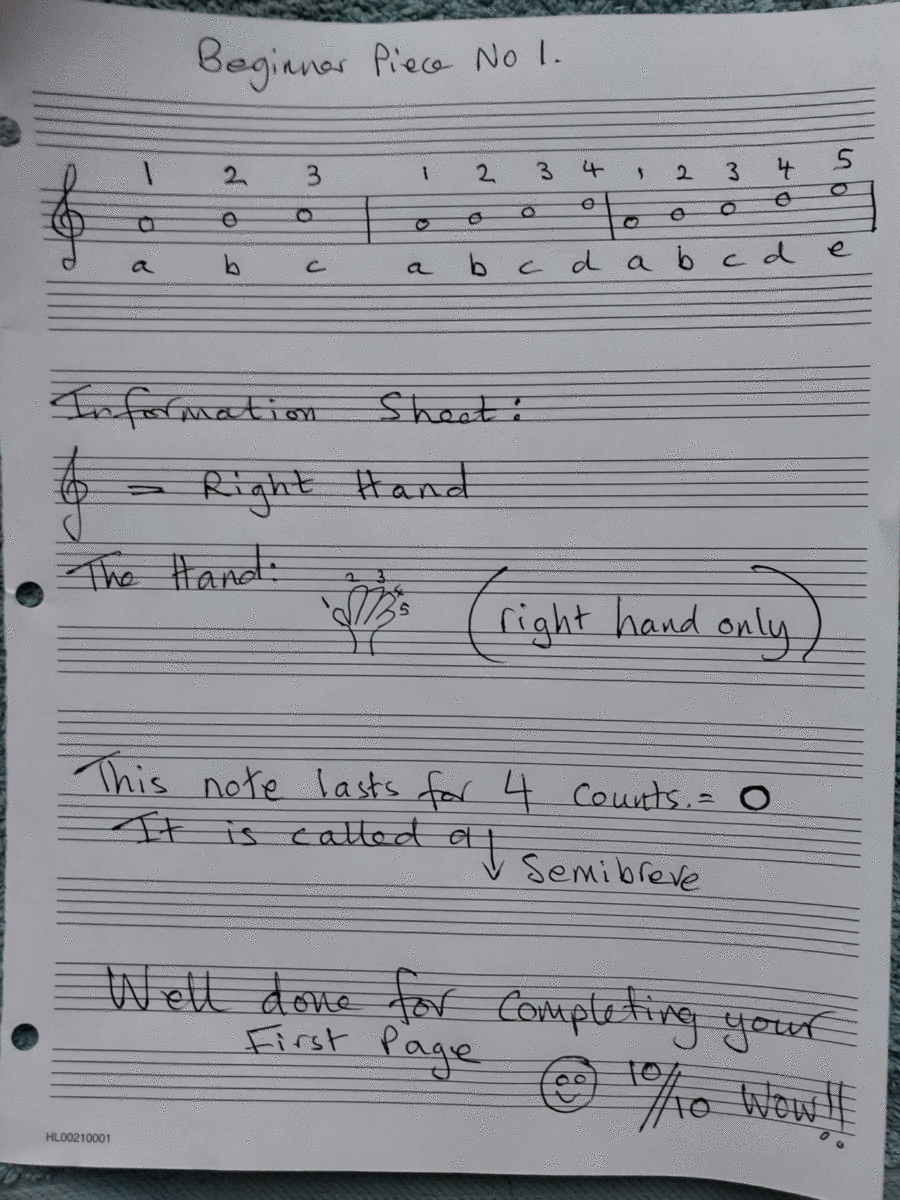 Beginner Piece No 1.
1 2 3 1 2 3 4 1 2 3 4 5
a b c a b c d a b c d e
Information Sheet:
= Right Hand
The Hand:
1 2 3 4 5
(right hand only)
This note lasts for 4 counts. = O
It is called a
↓ Semibreve
Well done for completing your
First Page
10/10 Wow!!
HL00210001